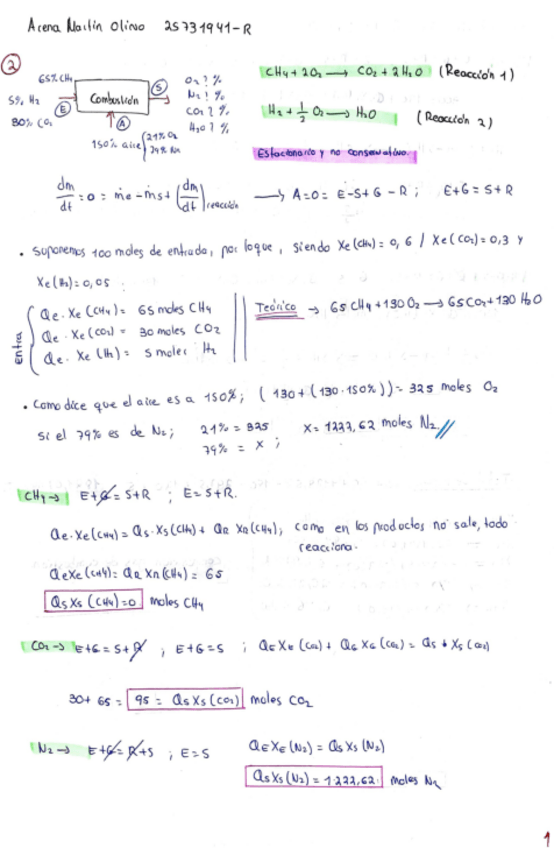 Arena Martín Olivo 25731941-R
②
65% CH4
5% H2
30% CO2
E
Combustión
S
A
150% aire
21% O2
79% N2
O2 ? %
N2 ? %
CO2 ? %
H2O ? %
CH4 + 2O2 → CO2 + 2H2O (Reacción 1)
H2 + 1/2 O2 → H2O (Reacción 2)
Estacionario y no conservativo.
dm/dt = 0 = ṁe - ṁs + (dm/dt) reacción → A=0= E-S+G-R ; E+G = S+R
• Suponemos 100 moles de entrada, por lo que, siendo Xe(CH4)= 0,6 / Xe(CO2)=0,3 y
Xe(H2)=0,05 :
Entra
Qe · Xe (CH4)= 65 moles CH4
Qe · Xe (CO2) = 30 moles CO2
Qe · Xe (H2)= 5 moles H2
Teórico → 65 CH4 + 130 O2 → 65 CO2 + 130 H2O
• Como dice que el aire es a 150%; (130 + (130·150%)) = 325 moles O2
si el 79% es de N2; 21% = 325
79% = X ; X = 1222,62 moles N2 //
CH4 → E+G = S+R ; E = S+R.
Qe·Xe(CH4) = QS·XS(CH4) + QR XR(CH4), como en los productos no sale, todo
reacciona.
QeXe(CH4) = QR XR(CH4) = 65
QSXS (CH4)=0 moles CH4
CO2 → E+G = S+R ; E+G = S ; QEXE (CO2) + QG XG (CO2) = QS · XS (CO2)
30 + 65 = 95 = QSXS (CO2) moles CO2
N2 → E+G = R+S ; E = S QEXE (N2) = QSXS (N2)
QSXS (N2) = 1.222,62 moles N2
1